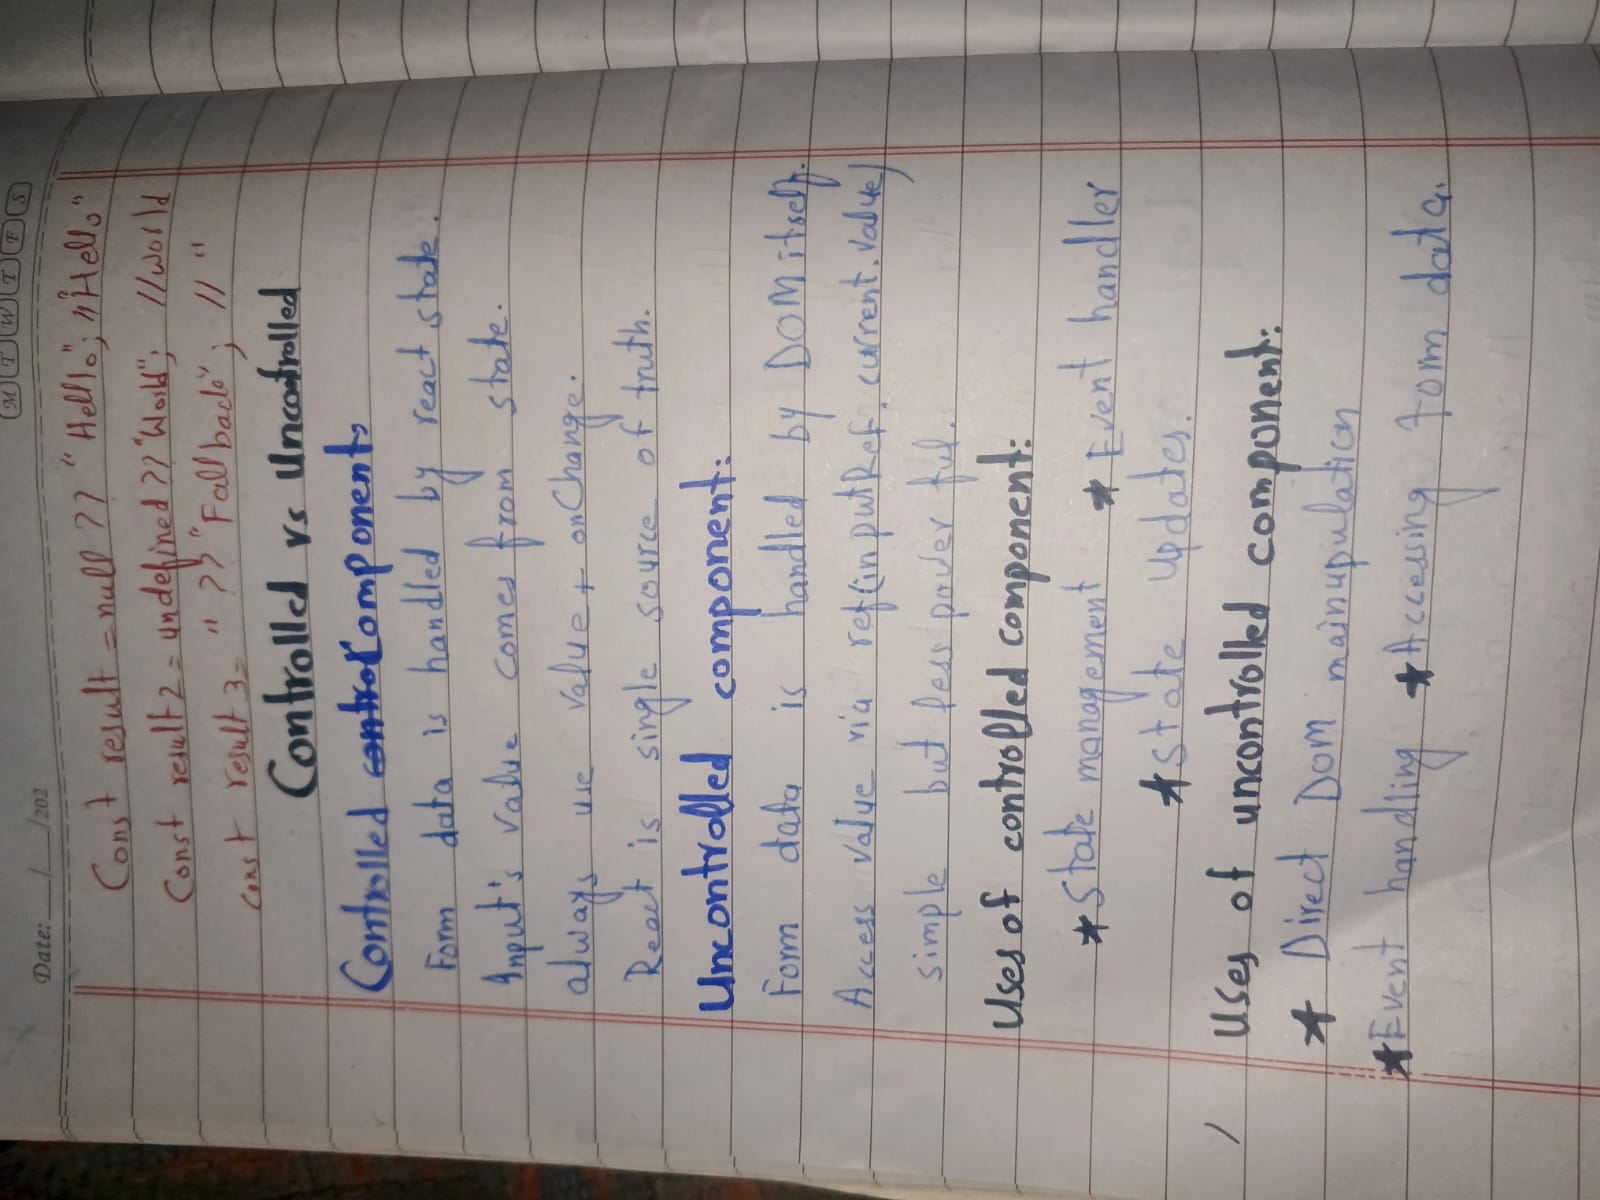 Date: __/__/202
M T W T F S
Const result = null ?? "Hello"; // Hello"
Const result 2 = undefined ?? "World"; // World
const result 3 = " ?? "Fallback"; // "
Controlled vs Uncontrolled
Controlled Component,
Form data is handled by react state.
Input's value comes from state.
always use value + onChange.
React is single source of truth.
Uncontrolled component:
Form data is handled by DOM itself.
Access value via ref(inputRef.current.value)
simple but less powerful.
Uses of controlled component:
* State management * Event handler
* State updates.
Uses of uncontrolled component:
* Direct Dom mainupulation
* Event handling * Accessing form data.